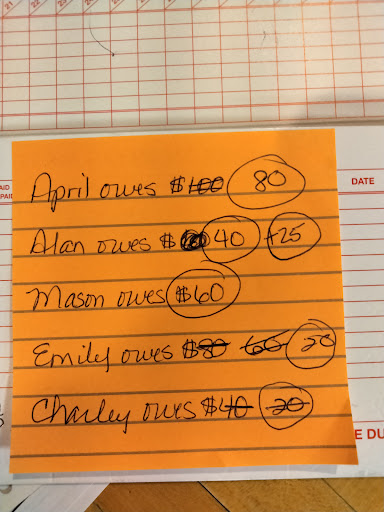 21 22 23
AID
PAID
DATE
April owes $100 80
Alan owes $ 40 +25
Mason owes $60
Emily owes $80 60 20
Charley owes $40 20
E DU